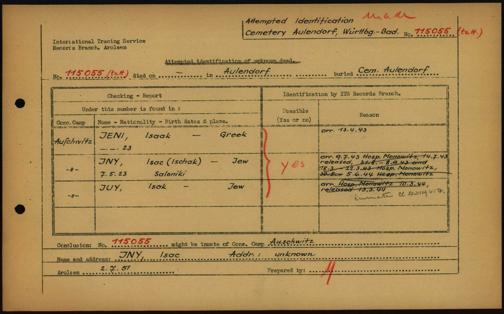 Attempted Identification
Cemetery Aulendorf, Württbg.-Bad. No. 115055 (tatt.)
International Tracing Service
Records Branch, Arolsen
Attempted identification of unknown dead.
No. 115055 (tatt) died on - in Aulendorf buried Cem. Aulendorf
Checking - Report
Identification by ITS Records Branch.
Under this number is found in:
Possible (Yes or no)
Reason
Conc.Camp
Name - Nationality - Birth dates & place.
Auschwitz
JENI, Isaak — Greek
arr. 13.4.43
— . — 23
JNY, Isac (Ischak) — Jew
7.5.23 Saloniki
YES
arr. 9.7.43 Hosp. Monowitz, 14.7.43
released,
5.6.44 Hosp. Monowitz
JUY, Isak — Jew
arr. Hosp. Monowitz 10.3.44,
released 13.3.44
Conclusion: No. 115055 might be inmate of Conc. Camp Auschwitz
Name and address: JNY, Isac Addr.: unknown
Arolsen 2.7.51 Prepared by: